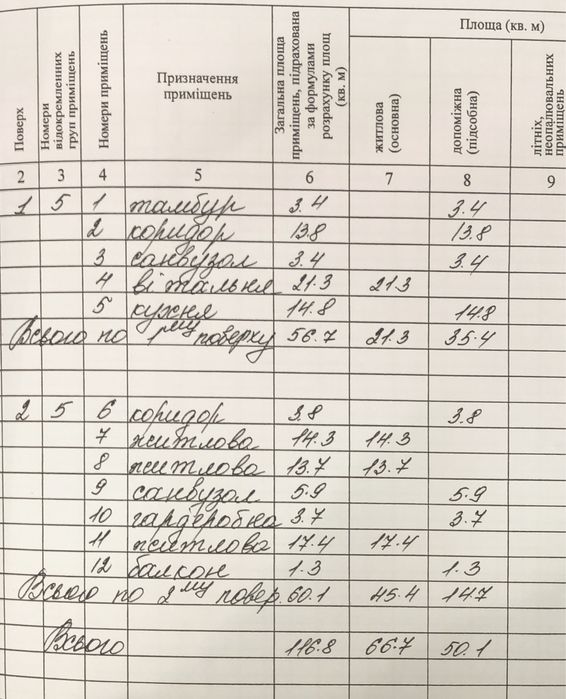 Площа (кв. м)
Поверх
Номери відокремленних груп приміщень
Номери приміщень
Призначення приміщень
Загальна площа приміщень, підрахована за формулами розрахунку площ (кв. м)
житлова (основна)
допоміжна (підсобна)
літніх, неопалювальних приміщень
2 3 4 5 6 7 8 9
1 5 1 тамбур 3.4 3.4
2 коридор 13.8 13.8
3 санвузол 3.4 3.4
4 вітальня 21.3 21.3
5 кухня 14.8 14.8
Всього по 1му поверху 56.7 21.3 35.4
2 5 6 коридор 3.8 3.8
7 житлова 14.3 14.3
8 житлова 13.7 13.7
9 санвузол 5.9 5.9
10 гардеробна 3.7 3.7
11 житлова 17.4 17.4
12 балкон 1.3 1.3
Всього по 2му повер. 60.1 45.4 14.7
Всього 116.8 66.7 50.1